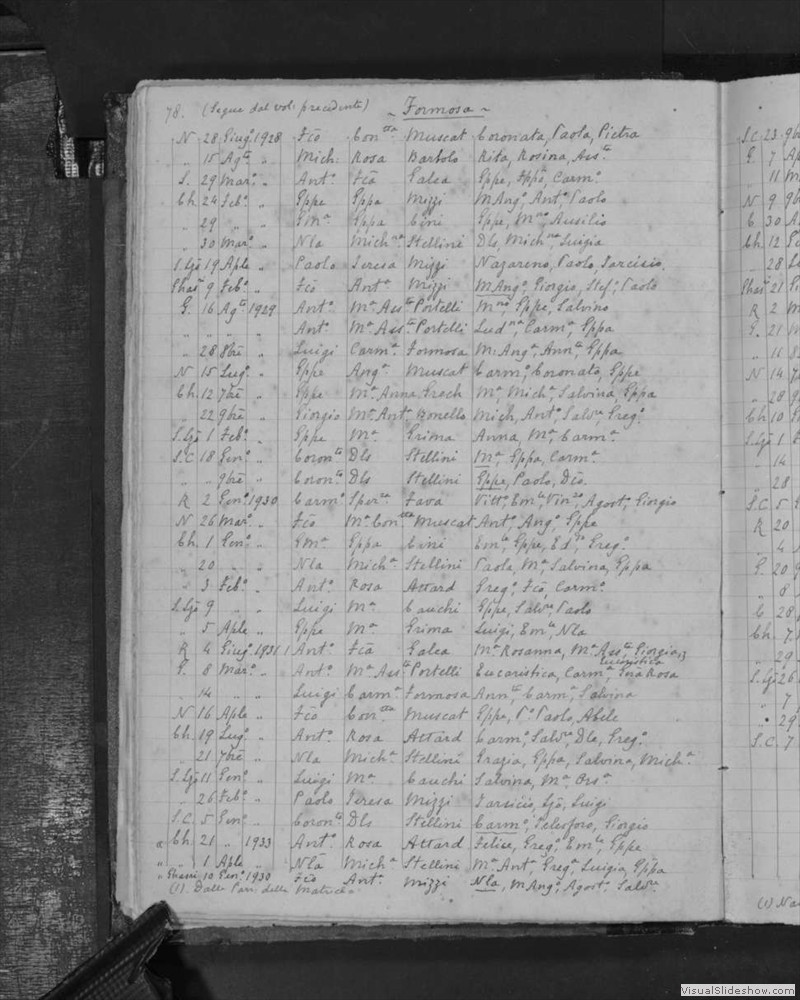 78. (Segue dal vol: precedente) ~ Formosa ~
N 28 Giugº 1928 Fcō Conᵗᵗᵃ Muscat Coronata, Paola, Pietra
„ 15 Agᵗº „ Mich: Rosa Bartolo Rita, Rosina, Assᵗᵃ
S. 29 Marº „ Antº Fcā Galea Eppe, Carmº
Ch. 24 Febº „ Eppe Eppa Mizzi M Angº Antº Paolo
„ 29 „ „ Emª Eppa Cini Eppe, Ausilio
„ 30 Marº „ Nla Michⁿᵃ Stellini Dls, Michⁿᵃ, Luigia
S. Lzō 19 Aple „ Paolo Teresa Mizzi Nazareno, Paolo, Tarcisio.
Ghasº 9 Febº „ Fcō Antª Mizzi M Angº, Giorgio, Stefº, Paolo
G. 16 Agᵗº 1929 Antº Mª Assᵗᵃ Portelli Eppe, Salvino
„ „ „ „ Antº Mª Assᵗᵃ Portelli Ludᵛᵃ, Carmª, Eppa
„ 28 8bre „ Luigi Carmª Formosa M: Angª, Annᵗᵃ, Eppa
N 15 Lugº „ Eppe Angª Muscat Carmº, Coronato, Eppe
Ch. 12 7bre „ Eppe Mª Anna Grech Mª, Michª, Salvina, Eppa
„ 22 9bre „ Giorgio Mª Antª Bonello Mich, Antº Salvʳᵉ, Gregº
S. Lzō 1 Febº „ Eppe Mª Grima Anna, Mª, Carmª
S.C 18 Genº „ Coronᵗº Dls Stellini Mª, Eppa, Carmª
„ „ 9bre „ Coronᵗº Dls Stellini Eppe, Paolo,
R 2 Genº 1930 Carmº Sperᶻᵃ Fava Vittº, Emˡᵉ, Vinᶻº, Agostº, Giorgio
N 26 Marº „ Fcō Mª Conᵗᵗᵃ Muscat Antº, Angº, Eppe
Ch. 1 Genº „ Emª Eppa Cini Emˡᵉ, Eppe, Edᵈº, Gregº
„ 20 „ „ Nla Michª Stellini Paola, Mª, Salvina, Eppa
„ 3 Febº „ Antº Rosa Attard Gregº, Fcō, Carmº
S. Lzō 9 „ „ Luigi Mª Cauchi Eppe, Salvʳᵉ, Paolo
„ 5 Aple „ Eppe Mª Grima Luigi, Emˡᵉ, Nla
R 4 Giugº 1931 Antº Fcā Galea Mª Rosanna, Mª Assᵗᵃ, Giorgia
G. 8 Marº „ Antº Mª Assᵗᵃ Portelli Eucaristica, Carmª, Rosa
„ 14 „ „ Luigi Carmª Formosa Annᵗᵃ, Carmª, Salvina
N 16 Aple „ Fcō Conᵗᵗᵃ Muscat Eppe, Pº Paolo, Abele
Ch. 19 Lugº „ Antº Rosa Attard Carmº, Salvʳᵉ, Dls, Gregº
„ 21 7bre „ Nla Michª Stellini Grazia, Eppa, Salvina, Michª
S. Lzō 11 Genº „ Luigi Mª Cauchi Salvina, Mª, Orsª
„ 26 Febº „ Paolo Teresa Mizzi Tarsicio, Lzō, Luigi
S.C. 5 Genº „ Coronᵗº Dls Stellini Carmº, Telesforo, Giorgio
„ Ch. 21 „ 1933 Antº Rosa Attard Felice, Gregº, Emˡᵉ, Eppe
„ „ 1 Aple „ Nla Michª Stellini Mª Antª, Gregª, Luigia, Eppa
„ Ghasri 10 Genº 1930 Fcō Antª Mizzi Nla, M Angº, Agostº, Salvʳᵉ
(1). Dalla Parr. della Matrice
S.C. 23
G. 7
„ 11
N 9
G 30
Ch. 12
„ 28
Ghasº 21
R 2
G. 21
„ 11
N 14
„ 28
Ch 10
S. Lzō 1
„ 14
„ 28
S.C. 5
R 20
„ 4
G. 20
„ 8
G 28
Ch. 7
„ 29
S. Lzō 26
„ 7
„ 29
S.C. 7
VisualSlideshow.com